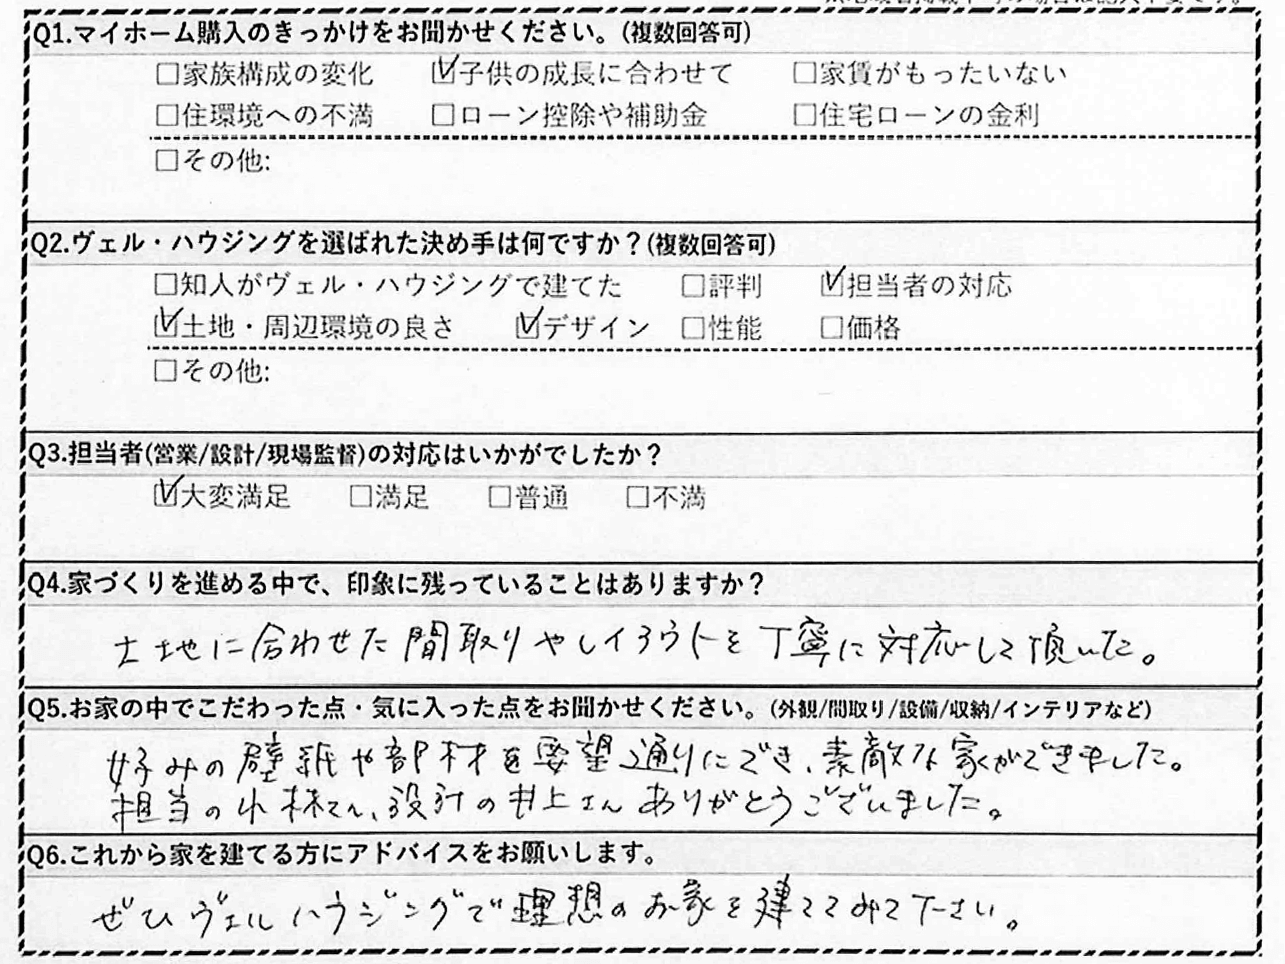 Q1.マイホーム購入のきっかけをお聞かせください。(複数回答可)
□家族構成の変化 ☑子供の成長に合わせて □家賃がもったいない
□住環境への不満 □ローン控除や補助金 □住宅ローンの金利
□その他:
Q2.ヴェル・ハウジングを選ばれた決め手は何ですか？(複数回答可)
□知人がヴェル・ハウジングで建てた □評判 ☑担当者の対応
☑土地・周辺環境の良さ ☑デザイン □性能 □価格
□その他:
Q3.担当者(営業/設計/現場監督)の対応はいかがでしたか？
☑大変満足 □満足 □普通 □不満
Q4.家づくりを進める中で、印象に残っていることはありますか？
土地に合わせた間取りやレイアウトを丁寧に対応して頂いた。
Q5.お家の中でこだわった点・気に入った点をお聞かせください。(外観/間取り/設備/収納/インテリアなど)
好みの壁紙や部材を要望通りにでき、素敵な家ができました。
担当の小林さん、設計の井上さんありがとうございました。
Q6.これから家を建てる方にアドバイスをお願いします。
ぜひヴェルハウジングで理想のお家を建ててみて下さい。